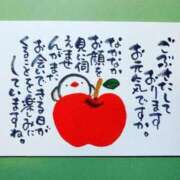 ごぶさたして
おります
お元気ですか。
なかなか
お顔を
見に伺
えませ
んがまた
お会いできる日が
くることを楽しみに
していますね。